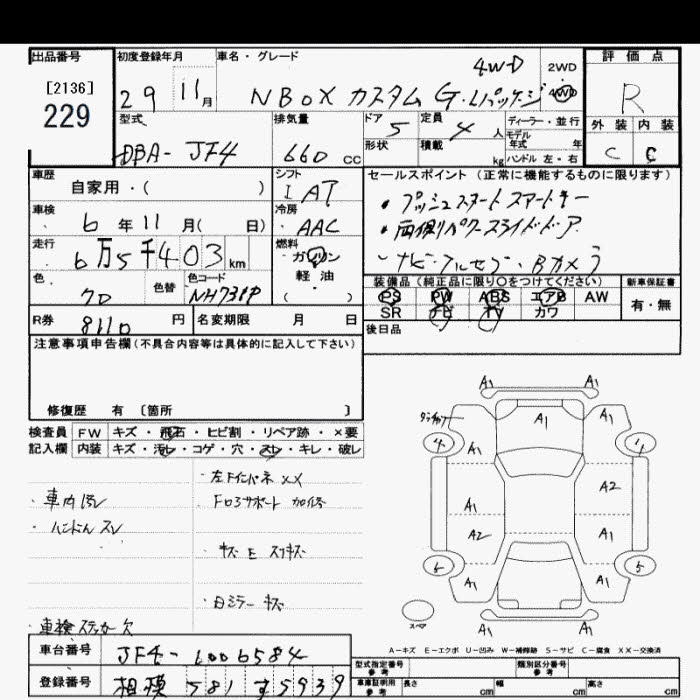 出品番号 初度登録年月 車名・グレード 評価点
[2136]
229
29 11月 NBOX カスタム G・Lパッケージ 4WD 2WD 4WD R
型式 排気量 ドア 定員 ディーラー・並行 外装 内装
DBA-JF4 660cc 5 4人 モデル年式 年 C C
形状 積載 kg ハンドル 左・右
車歴 シフト セールスポイント(正常に機能するものに限ります)
自家用・( ) IAT ・プッシュスタート スマートキー
車検 冷房 ・両側パワースライドドア
6年11月( 日) AAC
走行 燃料 ・ナビ・フルセグ・Bカメラ
6万5千403km ガソリン
軽油
( )
色 色替 色コード 装備品(純正品に限り○をつけてください) 新車保証書
NH731P PS PW ABS エアB AW 有・無
SR ナビ TV カワ
R券 8110円 名変期限 月 日 後日品
注意事項申告欄(不具合内容等は具体的に記入して下さい)
修復歴 有 〔箇所 〕
検査員 FW キズ・飛石・ヒビ割・リペア跡・×要
記入欄 内装 キズ・汚レ・コゲ・穴・スレ・キレ・破レ
・車内汚レ
・ハンドル スレ
・車検ステッカー欠
・左Fインパネ XX
・Fロアサポート
・キズ E
・日ミラー キズ
A1 A1
A1 A1
4 A1 4
A1 A2
A2 A1
5 A1 A1 5
A1 A1
スペア
A-キズ E-エクボ U-凹み W-補修跡 S-サビ C-腐食 XX-交換済
車台番号 JF4-1006584
登録番号 相模 581 す5939
型式指定番号 参考 類別区分番号 参考
車庫証明用 参考 長さ cm 幅 cm 高さ cm